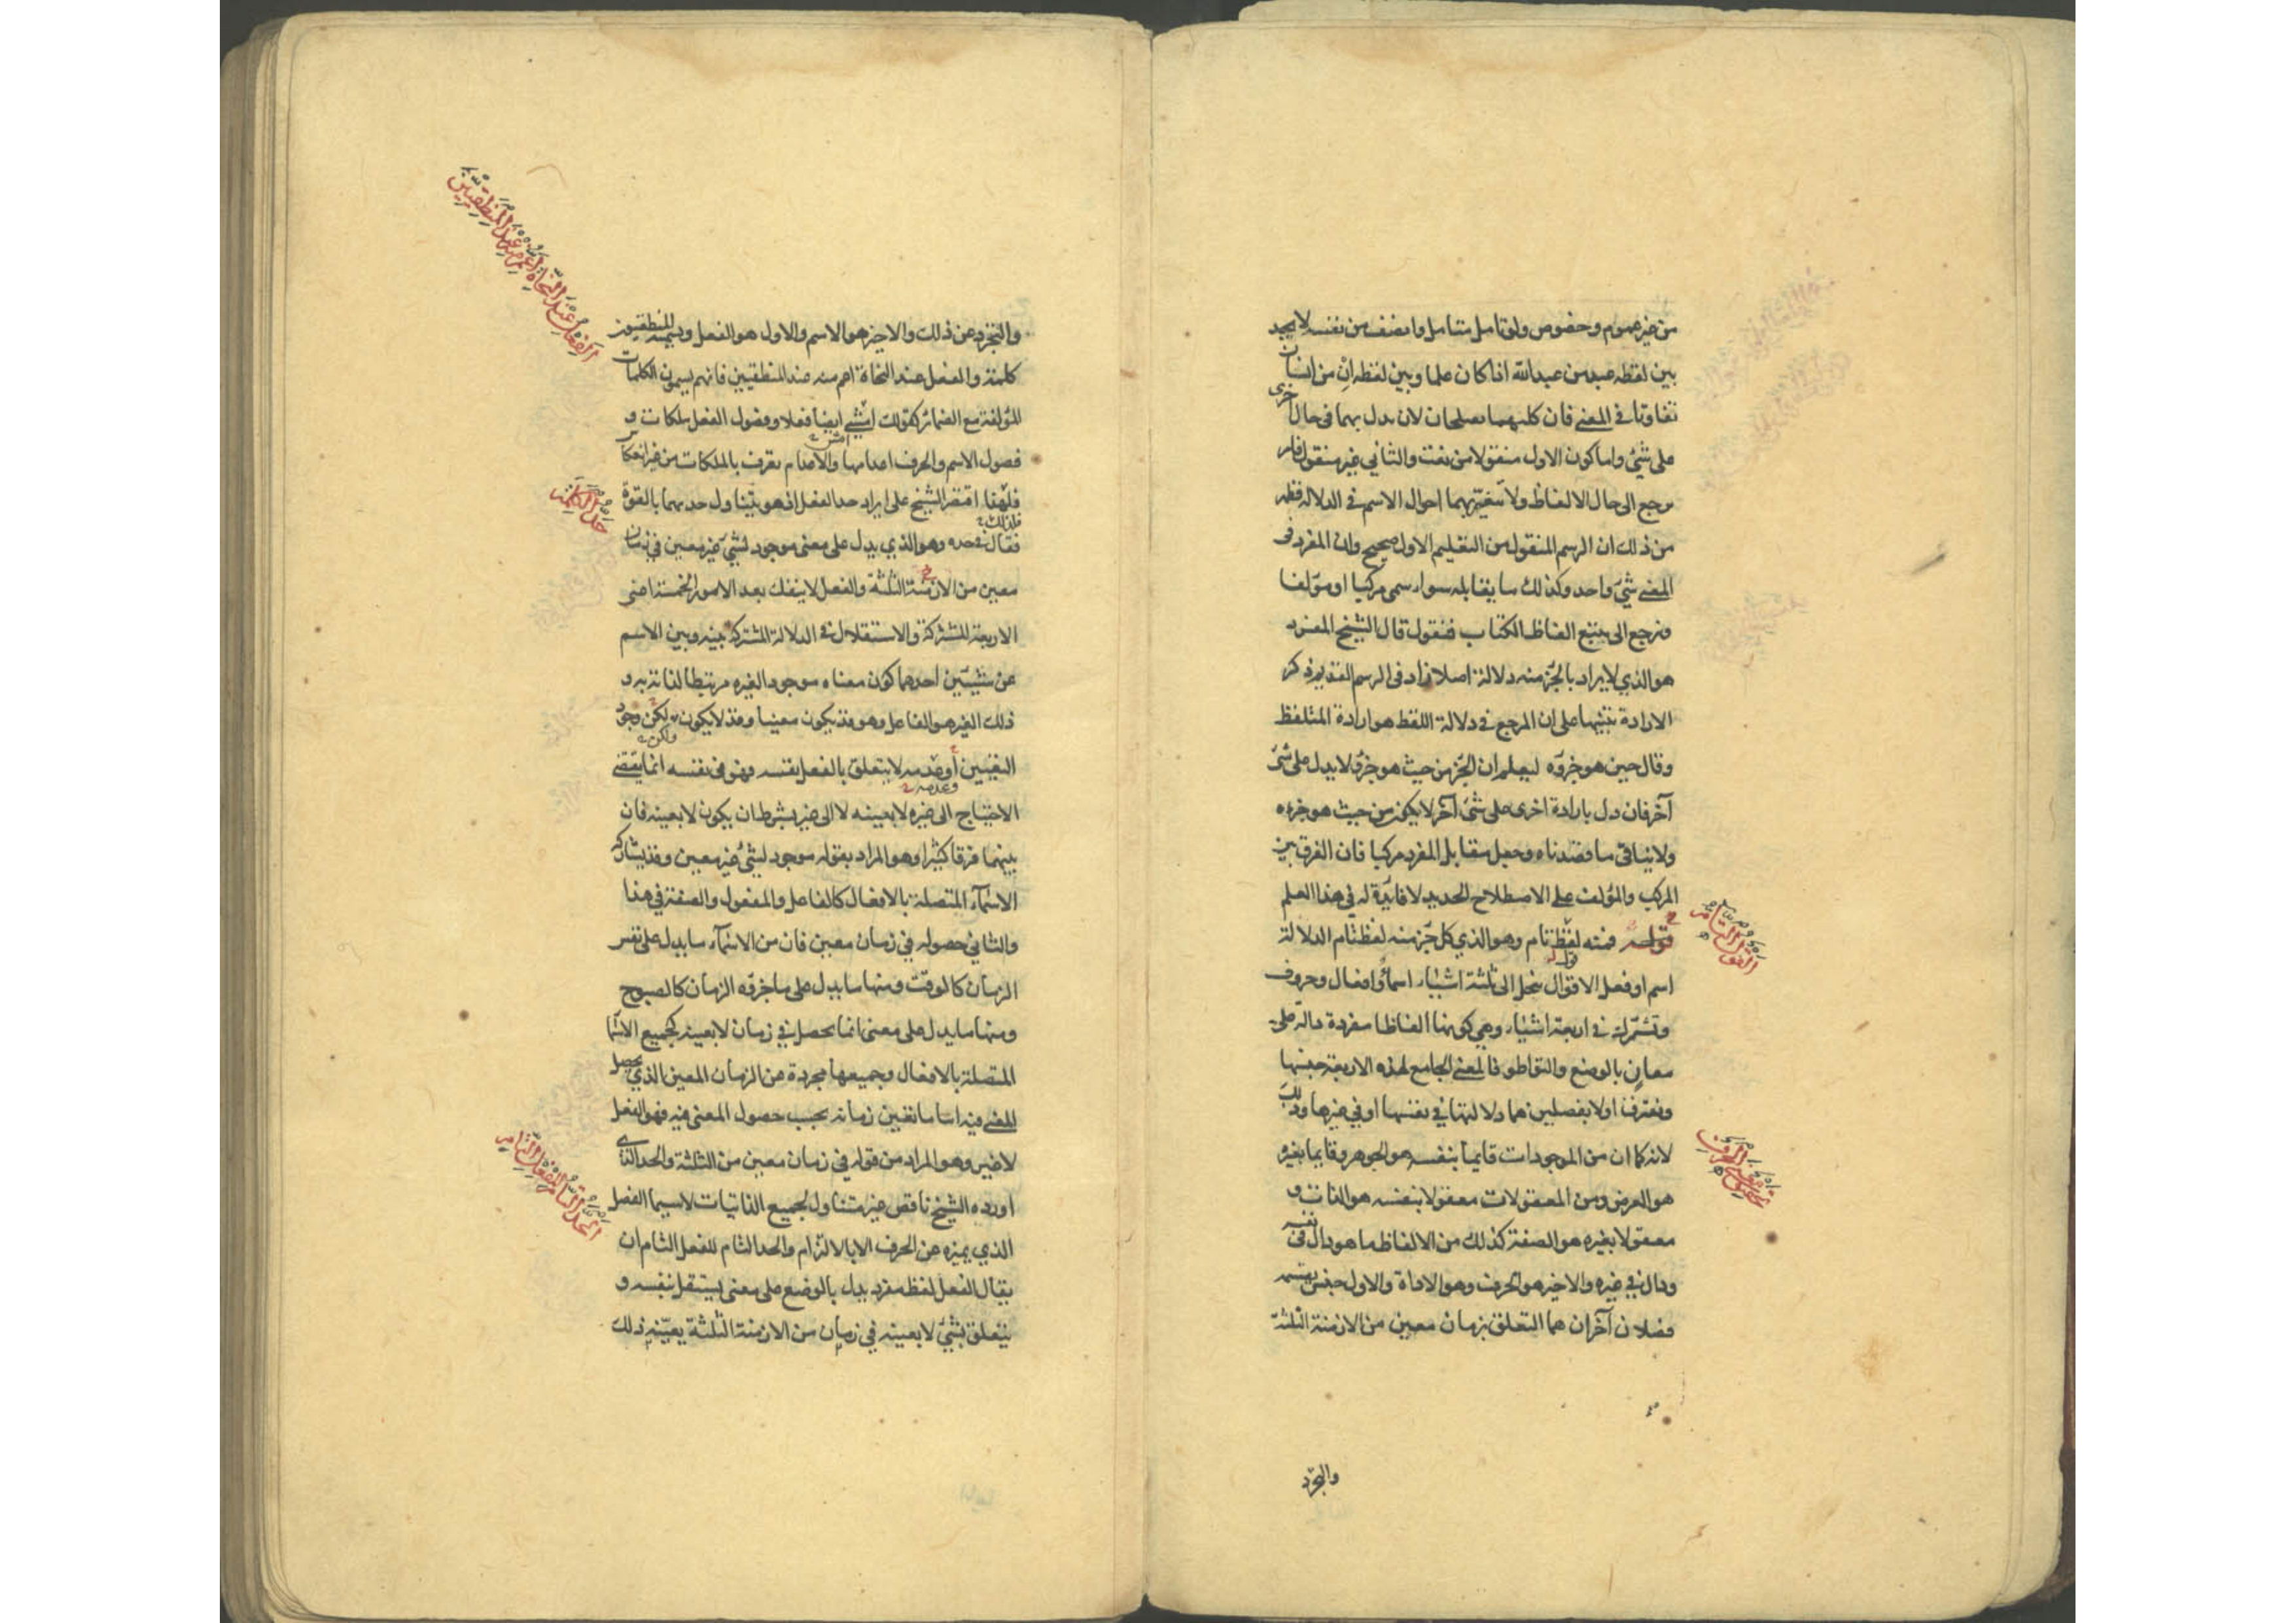 من غير عموم وخصوص ولو تامل متامل وانصف من نفسه لا يجد
بين لفظه عبد من عبد الله اذا كان علما وبين لفظه ان من انسان
تفاوتا في المعنى فان كليهما يصلحان لان يدل بهما في حال اخرى
على شئ واما كون الاول منقولا من نعت والثاني غير منقول فامر
يرجع الى حال الالفاظ ولا يتغير بهما احوال الاسم في الدلالة فظهر
من ذلك ان الرسم المنقول من التعليم الاول صحيح وان المفرد في
المعنى شئ واحد وكذلك ما يقابله سواء سمى مركبا او مؤلفا
ونرجع الى تتبع الفاظ الكتاب فنقول قال الشيخ المفرد
هو الذي لا يراد بالجزء منه دلالة اصلا زاد في الرسم القديم ذكر
الارادة تنبيها على ان المرجع في دلالة اللفظ هو ارادة المتلفظ
وقال حين هو جزؤه ليعلم ان الجزء من حيث هو جزؤ لا يدل على شئ
آخر فان دل بارادة اخرى على شئ آخر لا يكون من حيث هو جزءه
ولا ينافي ما قصدناه وجعل مقابل المفرد مركبا فان الفرق بين
المركب والمؤلف على الاصطلاح الجديد لا فايدة له في هذا العلم
قوله فمنه لفظ تام وهو الذي كل جزء منه لفظ تام الدلالة
القول التام
اسم او فعل الاقوال تنحل الى ثلثة اشياء اسماء وافعال وحروف
وتشترك في اربعة اشياء وهي كونها الفاظا مفردة دالة على
معان بالوضع والتواطؤ فالمعنى الجامع لهذه الاربعة جنسها
وتفترق اولا بفصلين هما دلالتها في نفسها او في غيرها وذلك
لانه كما ان من الموجودات قايما بنفسه هو الجوهر وقايما بغيره
تحقيق معنى الحرف
هو العرض ومن المعقولات معقولا بنفسه هو الذات و
معقولا بغيره هو الصفة كذلك من الالفاظ ما هو دال في نفسه
ودال في غيره والاخير هو الحرف وهو الاداة والاول جنس يقسمه
فصلان آخران هما التعلق بزمان معين من الازمنة الثلثة
والتجرد
والتجرد عن ذلك والاخير هو الاسم والاول هو الفعل ويسميه المنطقيون
الفعل عند النحاة اعم منه عند المنطقيين
كلمة والفعل عند النحاة اعم منه عند المنطقيين فانهم يسمون الكلمات
المؤلفة مع الضمائر كقولك امشي ايضا فعلا وفصول الفعل ملكات و
فصول الاسم والحرف اعدامها والاعدام تعرف بالملكات من غير انعكاس
فلهذا اقتصر الشيخ على ايراد حد الفعل اذ هو يتناول حدهما بالقوة
حد الكلمة
فقال وهو الذي يدل على معنى موجود لشئ غير معين في زمان
معين من الازمنة الثلثة والفعل لا ينفك بعد الامور الخمسة اعنى
الاربعة المشتركة والاستقلال في الدلالة المشترك بينه وبين الاسم
عن شيئين احدهما كون معناه موجودا لغيره مرتبطا لذاته به و
ذلك الغير هو الفاعل وهو قد يكون معينا وقد لا يكون لكن وجود
التعيين او عدمه لا يتعلق بالفعل نفسه فهو في نفسه انما يقتضى
الاحتياج الى غيره لا بعينه لا الى غير بشرط ان يكون لا بعينه فان
بينهما فرقا كثيرا وهو المراد بقوله موجود لشئ غير معين وقد يشاركه
الاسماء المتصلة بالافعال كالفاعل والمفعول والصفة في هذا
والثاني حصوله في زمان معين فان من الاسماء ما يدل على نفس
الزمان كالوقت ومنها ما يدل على ما جزؤه الزمان كالصبوح
ومنها ما يدل على معنى انما يحصل في زمان لا بعينه كجميع الاسماء
المتصلة بالافعال وجميعها مجردة عن الزمان المعين الذي يحصل
المعنى فيه اما ما تعين زمانه بحسب حصول المعنى فيه فهو الفعل
لا غير وهو المراد من قوله في زمان معين من الثلثة والحد الذى
الحد التام للفعل التام
اورده الشيخ ناقص غير متناول لجميع الذاتيات لا سيما الفصل
الذي يميزه عن الحرف الا بالالتزام والحد التام للفعل التام ان
يقال الفعل لفظ مفرد يدل بالوضع على معنى يستقل بنفسه و
يتعلق بشئ لا بعينه في زمان من الازمنة الثلثة يعينه ذلك